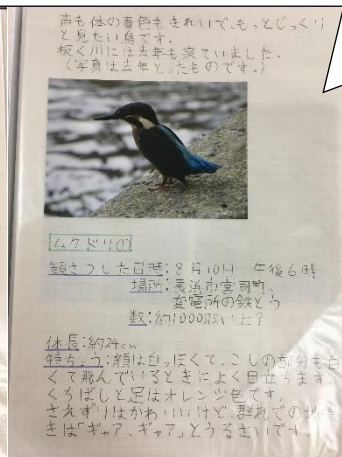 声も体の青色もきれいで、もっとじっくり
と見たい鳥です。
板く川には去年も来ていました。
(写真は去年とったものです。)
ムクドリ①
観さつした日時:8月10日 午後6時
場所:長浜市宮司町、
変電所の鉄とう
数:約1000羽い上?
体長:約24cm
特ちょう:顔は白っぽくて、こしの部分も白
くて飛んでいるときによく目立ちます。
くちばしと足はオレンジ色です。
さえずりはかわいいけど、群れでの
きは「ギャア、ギャア」とうるさいです。